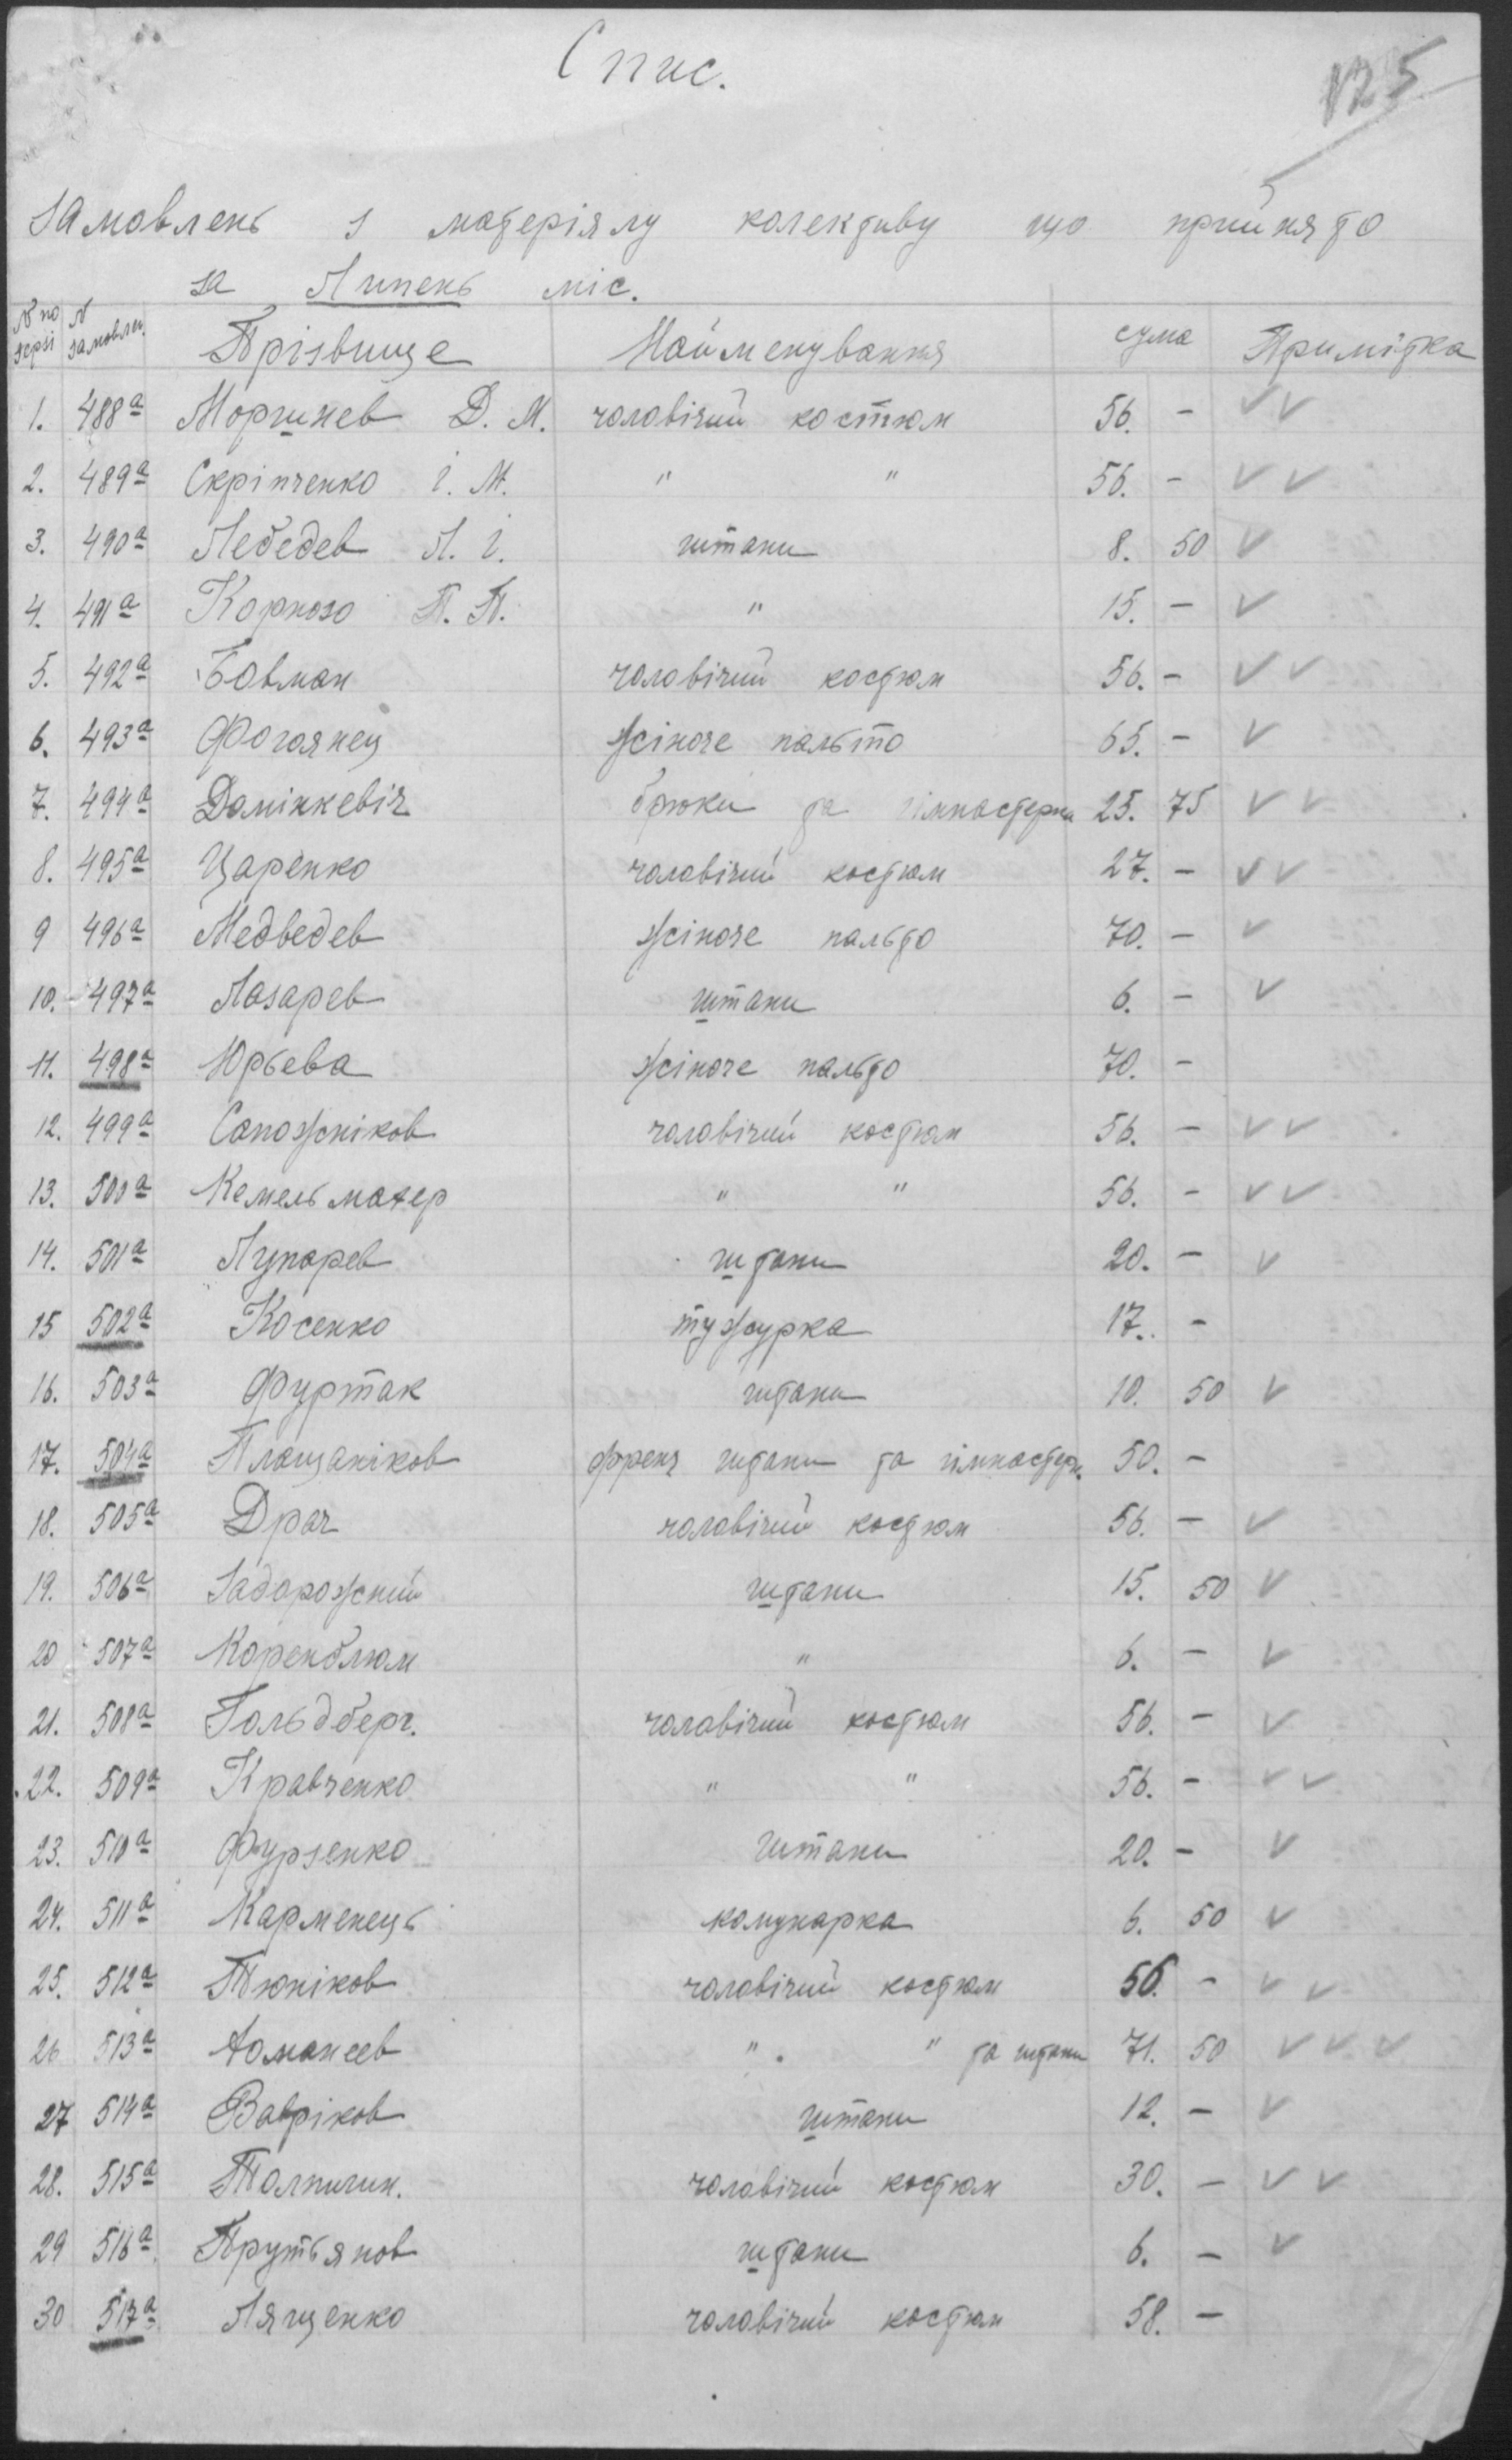 Спис.
125
замовлень з матеріялу колективу що прийнято
за Липень міс.
№ по серії № замовлен. Прізвище Найменування сума Примітка
1. 488а Моргинев Д. М. чоловічий костюм 56. - ✓✓
2. 489а Скріпченко І. М. " " 56. - ✓✓
3. 490а Лебедев Л. І. штани 8. 50 ✓
4. 491а Корнозо П. П. " 15. - ✓
5. 492а Бовман чоловічий костюм 56. - ✓✓
6. 493а Фогоянец жіноче пальто 65. - ✓
7. 494а Домінкевіч брюки та гімнастерка 25. 75 ✓✓
8. 495а Царенко чоловічий костюм 27. - ✓✓
9 496а Медведев жіноче пальто 70. - ✓
10. 497а Лазарев штани 6. - ✓
11. 498а Юрьева жіноче пальто 70. -
12. 499а Сапожніков чоловічий костюм 56. - ✓✓
13. 500а Кемельмахер " " 56. - ✓✓
14. 501а Лупарев штани 20. - ✓
15 502а Косенко тужурка 17. -
16. 503а Фуртак штани 10. 50 ✓
17. 504а Плащаніков френч штани та гімнастерк. 50. -
18. 505а Драч чоловічий костюм 56. - ✓
19. 506а Задорожний штани 15. 50 ✓
20 507а Коренблюм " 6. - ✓
21. 508а Гольдберг. чоловічий костюм 56. - ✓
22. 509а Кравченко " " 56. - ✓✓
23. 510а Фурзенко штани 20. - ✓
24. 511а Карменець комунарка 6. 50 ✓
25. 512а Тюніков чоловічий костюм 56. - ✓✓
26 513а Аманеев " " та штани 71. 50 ✓✓✓
27 514а Вавріков штани 12. - ✓
28. 515а Толпигин. чоловічий костюм 30. - ✓✓
29 516а Прутьянов штани 6. - ✓
30 517а Лященко чоловічий костюм 58. -